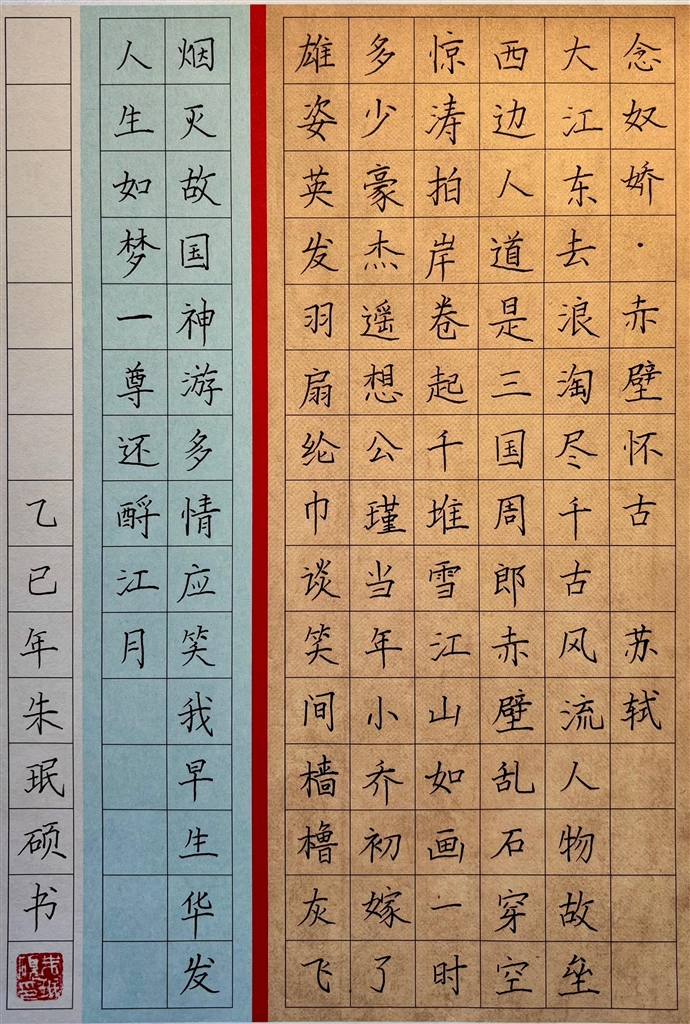 念奴娇·赤壁怀古 苏轼
大江东去浪淘尽千古风流人物故垒
西边人道是三国周郎赤壁乱石穿空
惊涛拍岸卷起千堆雪江山如画一时
多少豪杰遥想公瑾当年小乔初嫁了
雄姿英发羽扇纶巾谈笑间樯橹灰飞
烟灭故国神游多情应笑我早生华发
人生如梦一尊还酹江月
乙巳年朱珉硕书